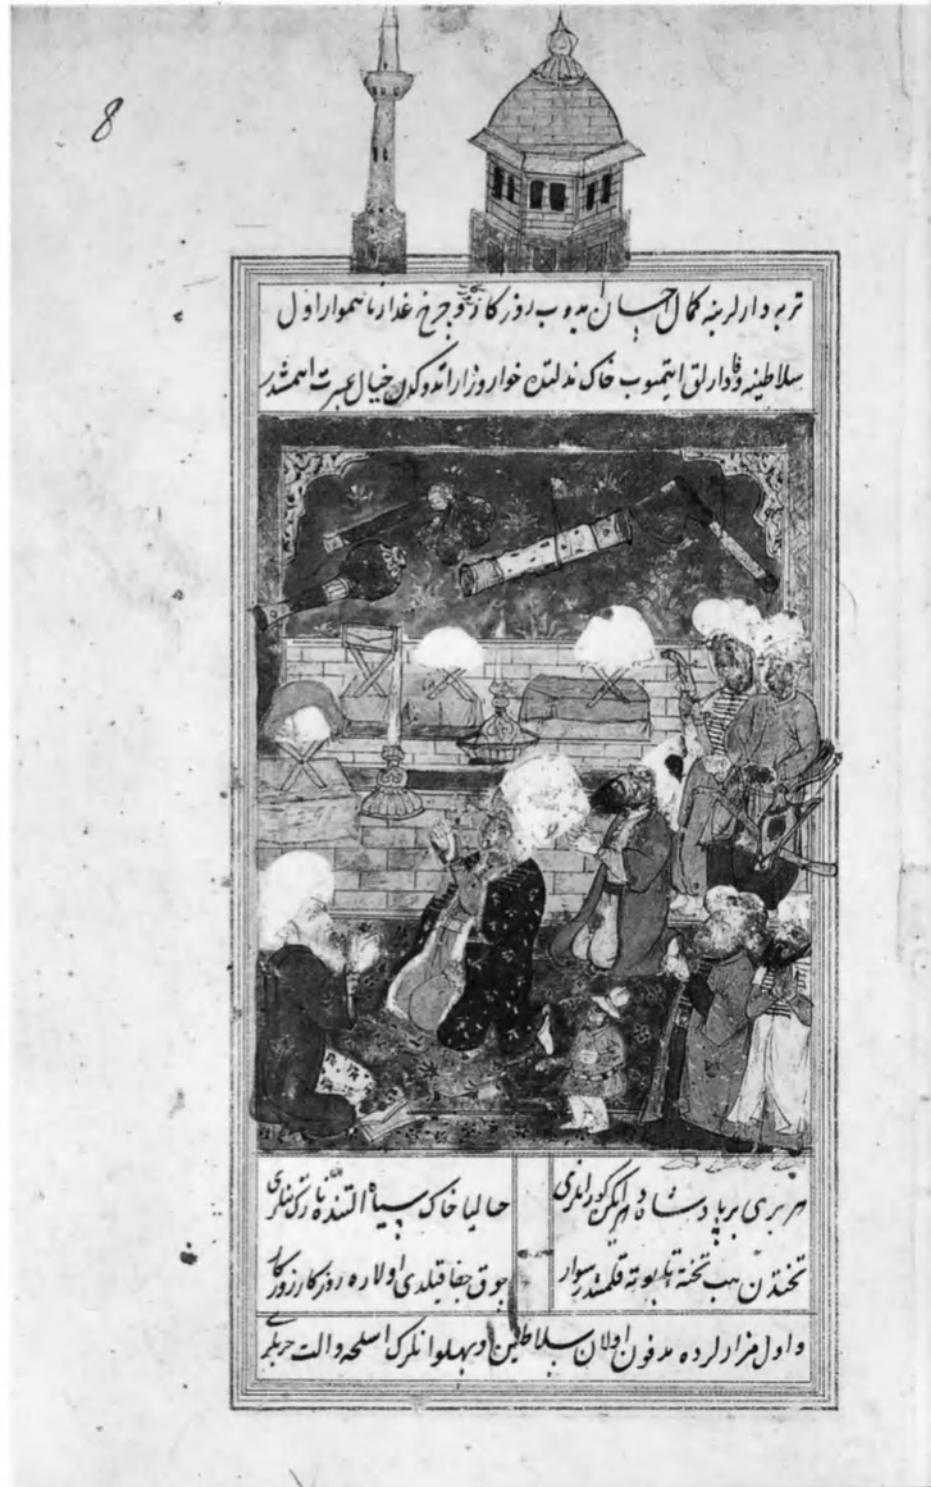 8
تربه دارلرینه كمال احسان ایدوب روزكار و چرخ غدار ناهموار اول
سلاطینه وفادارلق ایتمیوب خاك مذلتده خوار و زار اتدوكدن خیال عبرت ایتمشدر
هر بری بر پادشاه
حالیا خاك سیاه التنده
تختدن تخته تابوته قلمشدر سوار
چوق جفا قیلدی اولاره روزكار
و اول مزارلرده مدفون اولان سلاطین و پهلوانلرك اسلحه و الت حربلری